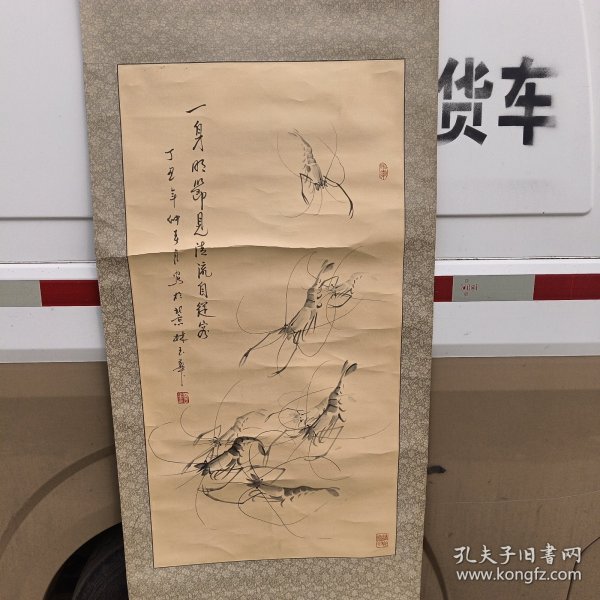 一身明节见清流自从容
丁丑年仲春月写於
林玉华
货车
孔夫子旧书网
www.kongfz.com